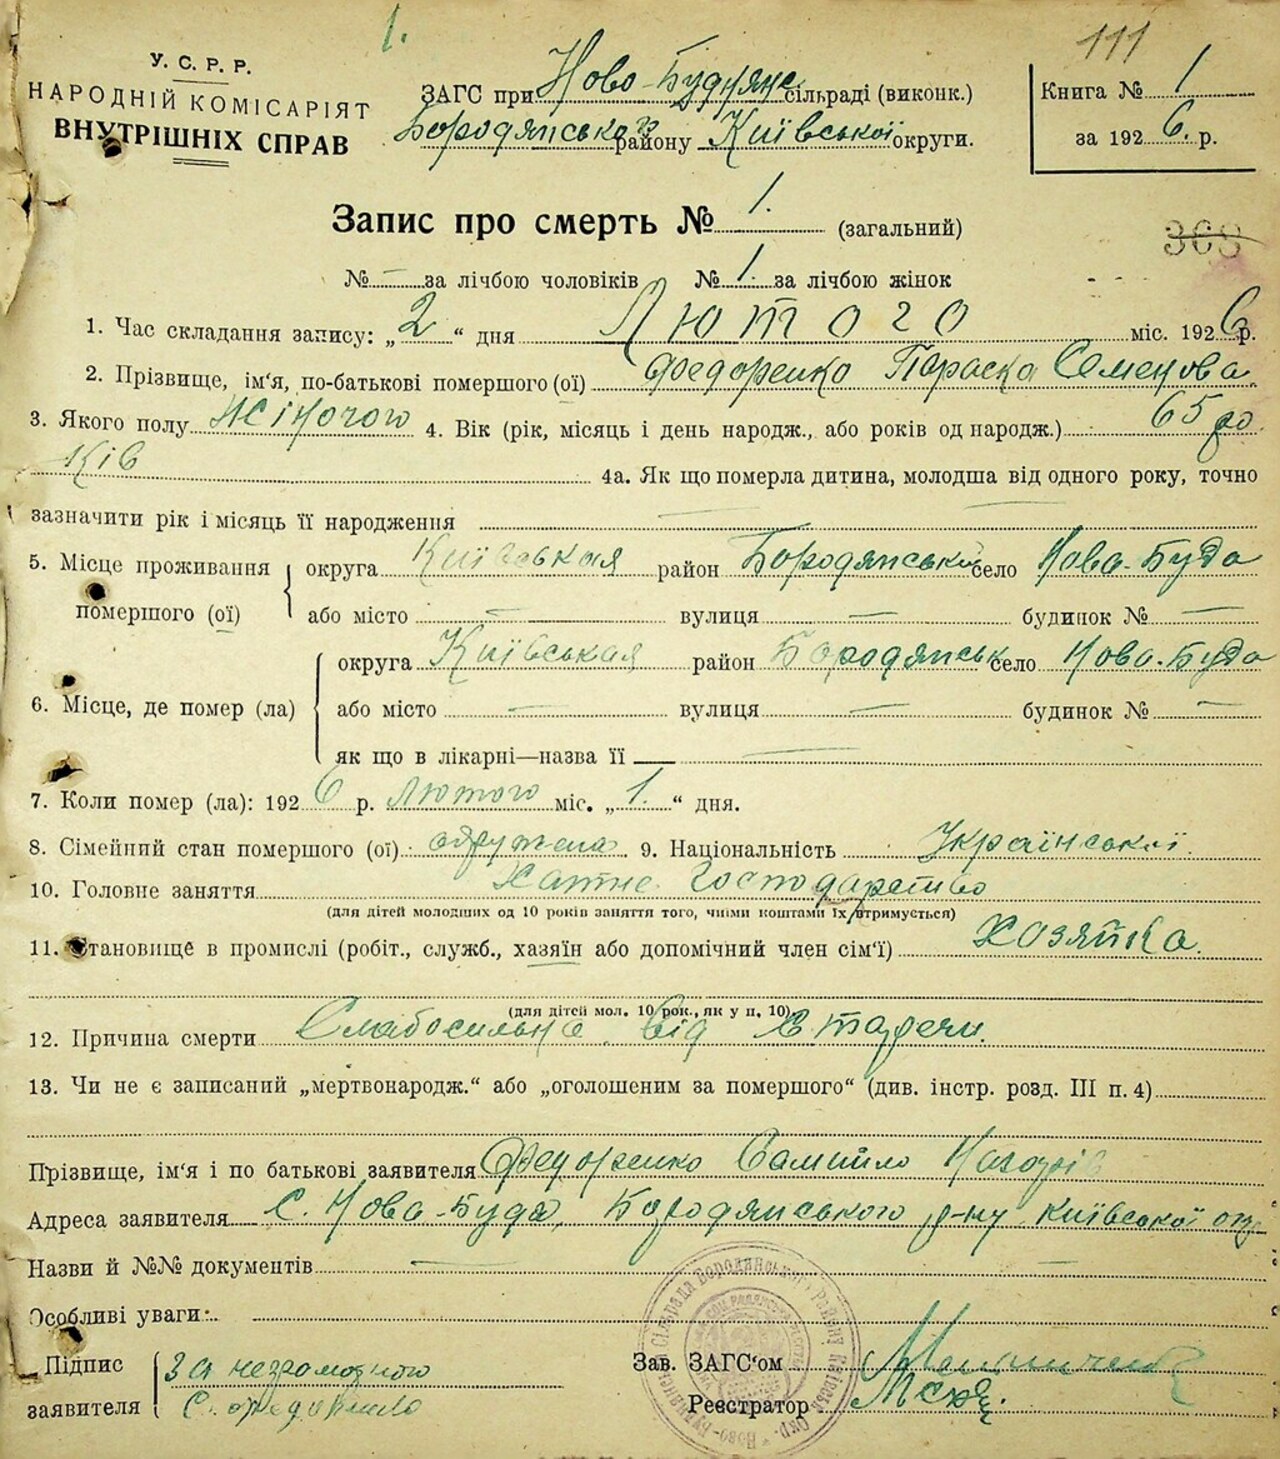 1.
111
У. С. Р. Р.
НАРОДНІЙ КОМІСАРІЯТ
ВНУТРІШНІХ СПРАВ
ЗАГС при Ново-Буднянс сільраді (виконк.)
Бородянського району Київської округи.
Книга № 1
за 1926. р.
Запис про смерть № 1. (загальний)
368
№ — за лічбою чоловіків № 1. за лічбою жінок
1. Час складання запису: „2“ дня Лютого міс. 1926 р.
2. Прізвище, ім'я, по-батькові помершого (ої) Федоренко Параска Семенова
3. Якого полу Жіночого 4. Вік (рік, місяць і день народж., або років од народж.) 65 ро
ків 4а. Як що померла дитина, молодша від одного року, точно
зазначити рік і місяць її народження — —
5. Місце проживання помершого (ої) округа Київськая район Бородянськ село Нова-Буда
або місто — вулиця — будинок № —
6. Місце, де помер (ла) округа Київськая район Бородянськ село Нова-Буда
або місто — вулиця — будинок № —
як що в лікарні—назва її —
7. Коли помер (ла): 1926 р. Лютого міс. „1.“ дня.
8. Сімейний стан помершого (ої) одружена 9. Національність Української.
10. Головне заняття Хатнє Господарство
(для дітей молодших од 10 років заняття того, чиїми коштами їх утримується)
11. Становище в промислі (робіт., служб., хазяїн або допомічний член сім'ї) Хозяйка.
(для дітей мол. 10 рок., як у п. 10)
12. Причина смерти Слабосильна від Старечи.
13. Чи не є записаний „мертвонародж.“ або „оголошеним за помершого“ (див. інстр. розд. III п. 4)
Прізвище, ім'я і по батькові заявителя Федоренко Самийло
Адреса заявителя С. Нова-Буда, Бородянського р-ну Київської окр
Назви й №№ документів — —
Особливі уваги:
Підпис заявителя За незрамотного
С. Федоренко
Зав. ЗАГС'ом
Реєстратор